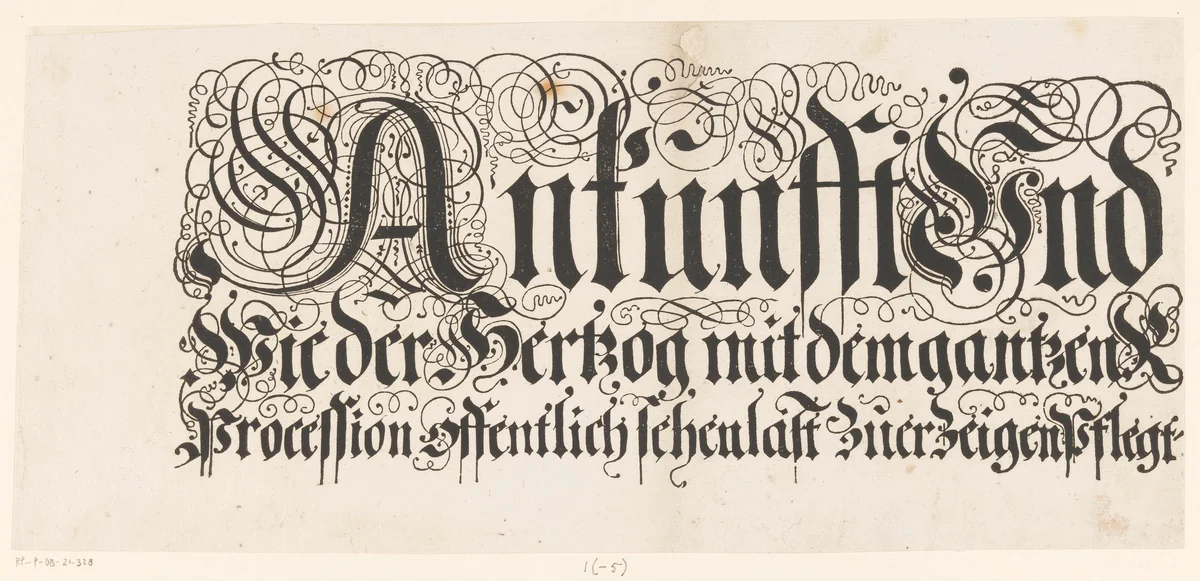 Ankunfft Vnd
Wie der Hertzog mit dem gantzen K
Procession offentlich sehen last zuerzeigen Pflegt
RP-P-OB-21.328
1(-5)